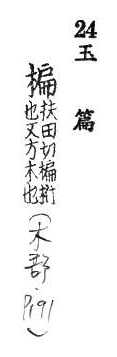 24玉篇
楄扶田切楄㭼
也又方木也(木部·P.191)